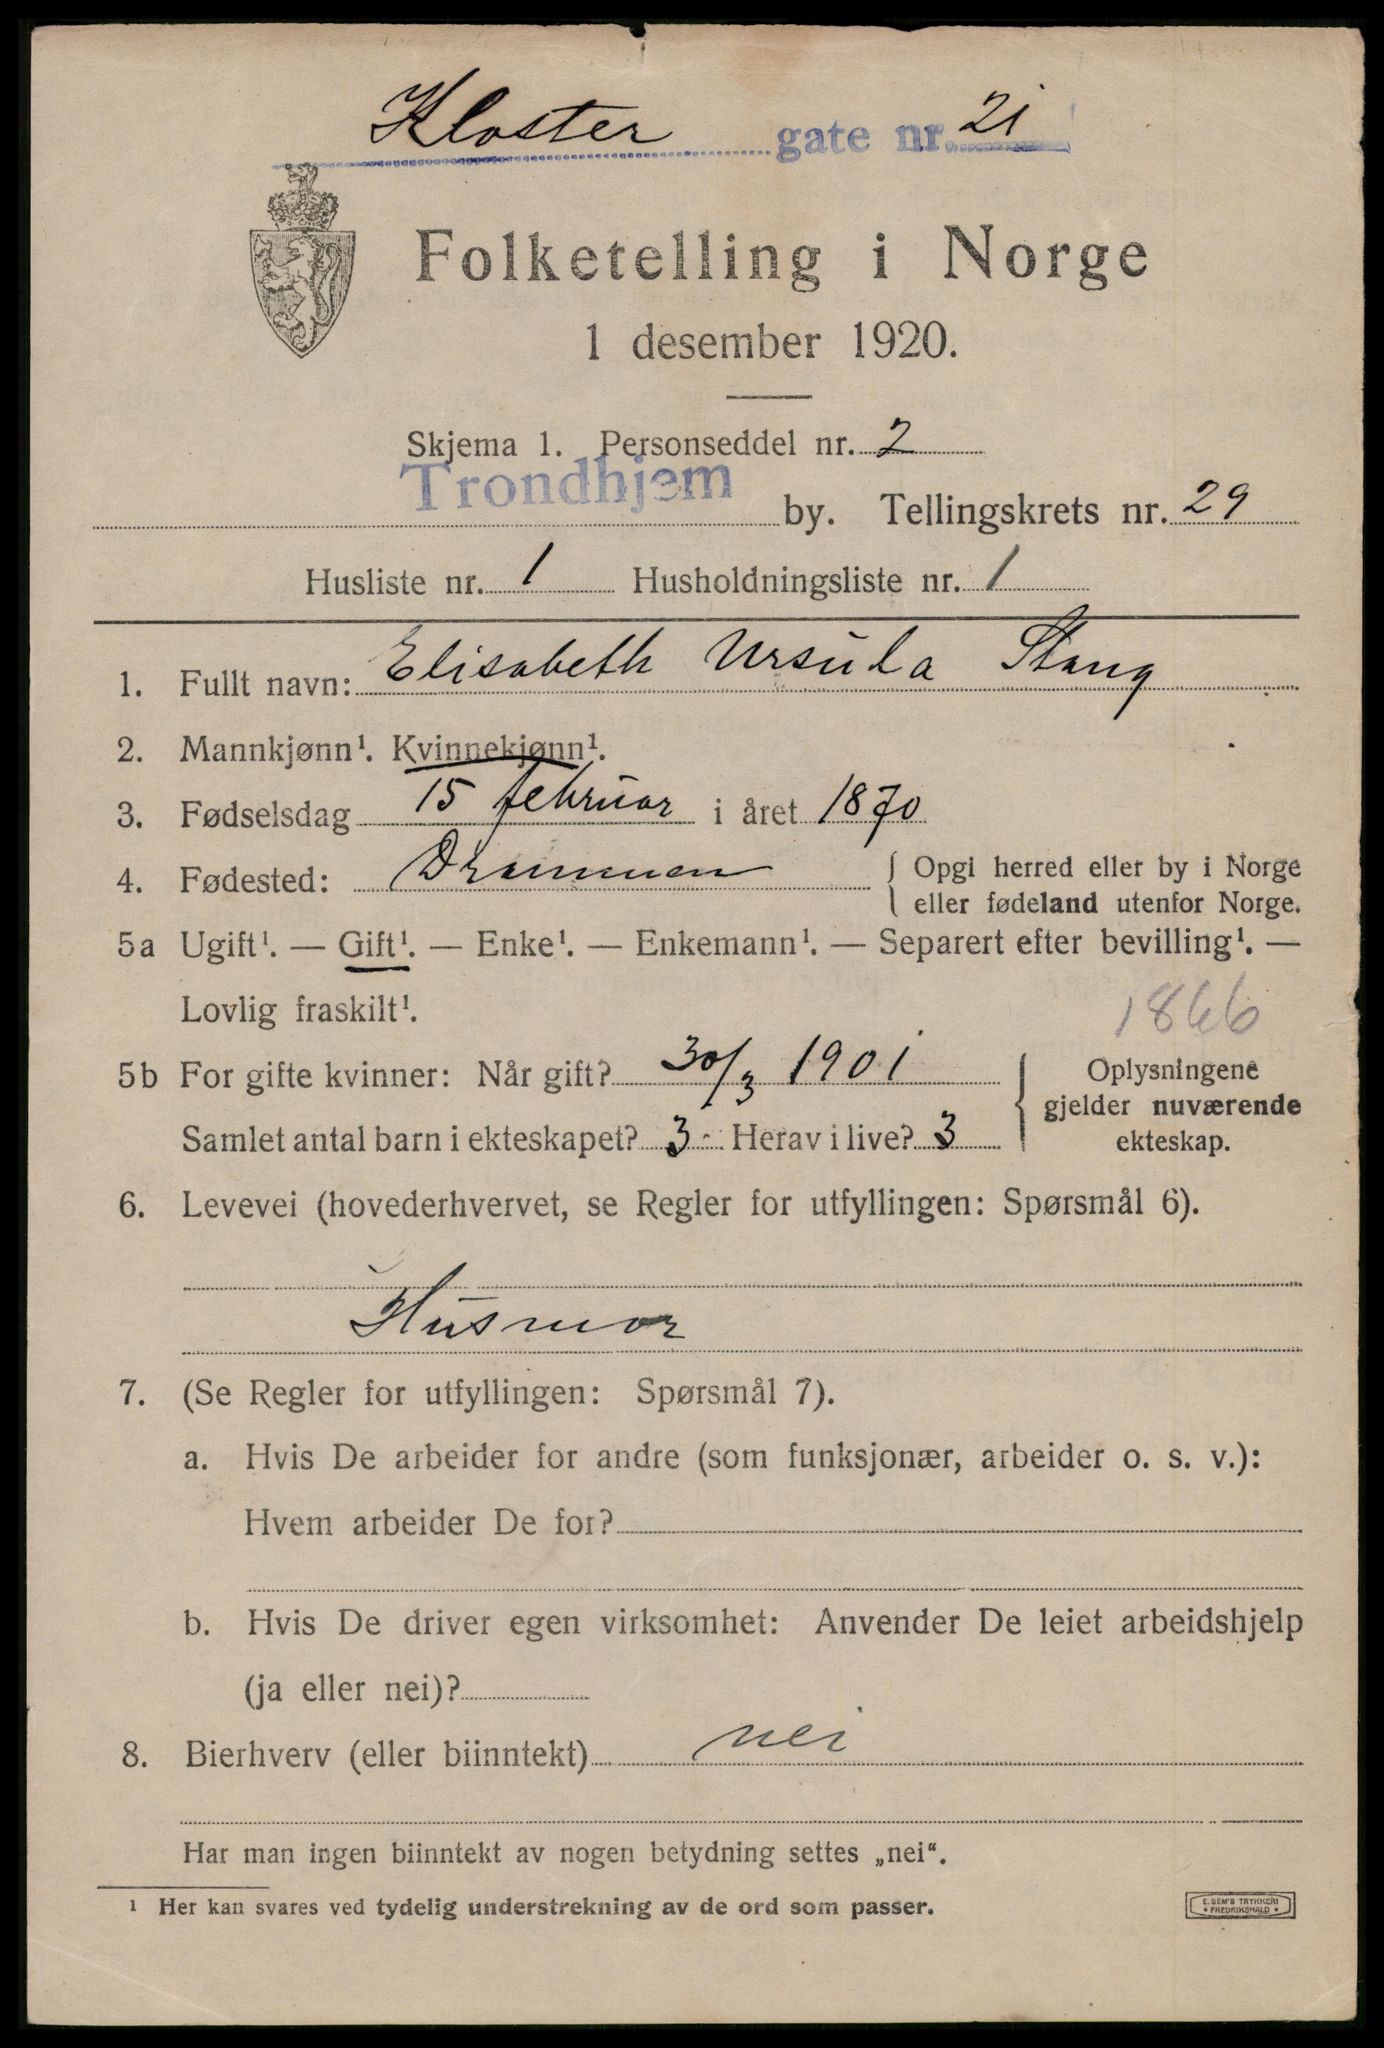 Kloster gate nr. 21
Folketelling i Norge
1 desember 1920.
Skjema 1. Personseddel nr. 2
Trondhjem by. Tellingskrets nr. 29
Husliste nr. 1 Husholdningsliste nr. 1
1. Fullt navn: Elisabeth Ursula Stang
2. Mannkjønn¹. Kvinnekjønn¹.
3. Fødselsdag 15 februar i året 1870
4. Fødested: Drammen { Opgi herred eller by i Norge
eller fødeland utenfor Norge.
5a Ugift¹. — Gift¹. — Enke¹. — Enkemann¹. — Separert efter bevilling¹. —
Lovlig fraskilt¹.
1866
5b For gifte kvinner: Når gift? 30/3 1901
Samlet antal barn i ekteskapet? 3 Herav i live? 3
{ Oplysningene
gjelder nuværende
ekteskap.
6. Levevei (hovederhvervet, se Regler for utfyllingen: Spørsmål 6).
Husmor
7. (Se Regler for utfyllingen: Spørsmål 7).
a. Hvis De arbeider for andre (som funksjonær, arbeider o. s. v.):
Hvem arbeider De for?
b. Hvis De driver egen virksomhet: Anvender De leiet arbeidshjelp
(ja eller nei)?
8. Bierhverv (eller biinntekt) nei
Har man ingen biinntekt av nogen betydning settes „nei“.
¹ Her kan svares ved tydelig understrekning av de ord som passer.
E. SEM'S TRYKKERI
• FREDRIKSHALD •